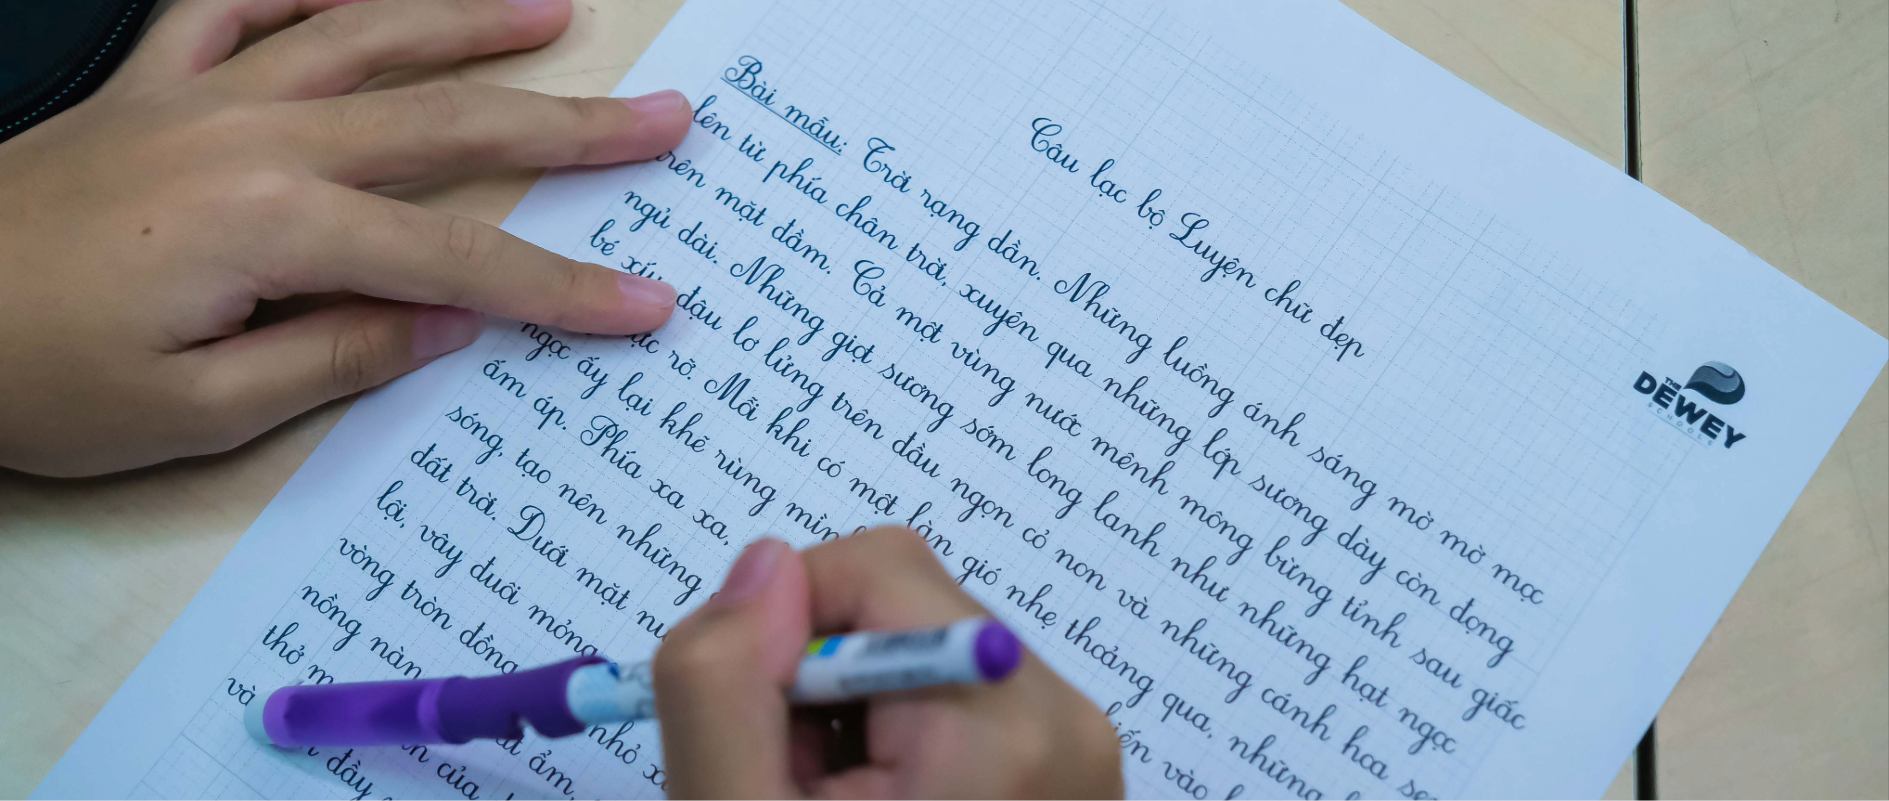 Câu lạc bộ Luyện chữ đẹp
THE
DEWEY
SCHOOLS
Bài mẫu: Trời rạng dần. Những luồng ánh sáng mờ mờ mọc
lên từ phía chân trời, xuyên qua những lớp sương dày còn đọng
trên mặt đầm. Cả một vùng nước mênh mông bừng tỉnh sau giấc
ngủ dài. Những giọt sương sớm long lanh như những hạt ngọc
bé xíu đậu lơ lửng trên đầu ngọn cỏ non và những cánh hoa
rỡ. Mỗi khi có một làn gió nhẹ thoảng qua, những
ngọc ấy lại khẽ rùng mình vào
ấm áp. Phía xa xa,
sóng, tạo nên những
đất trời. Dưới mặt
lội, vây đuôi mỏng
vòng tròn đồng
nồng nàn nhỏ
thở ẩm,
và của
đầy